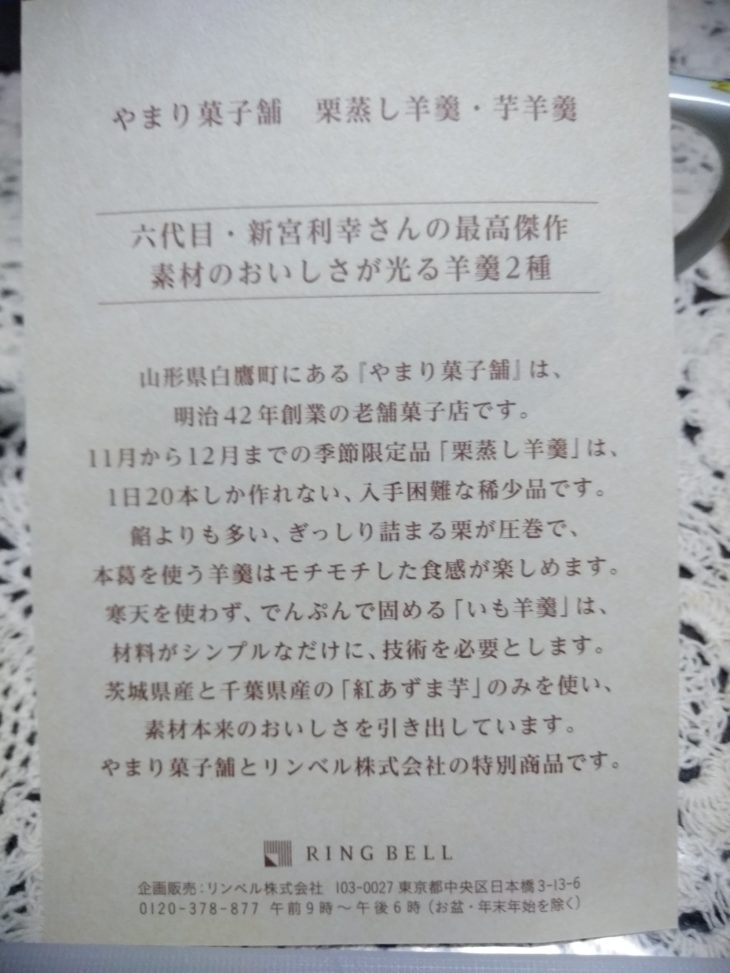 やまり菓子舗　栗蒸し羊羹・芋羊羹
六代目・新宮利幸さんの最高傑作
素材のおいしさが光る羊羹2種
山形県白鷹町にある『やまり菓子舗』は、
明治42年創業の老舗菓子店です。
11月から12月までの季節限定品「栗蒸し羊羹」は、
1日20本しか作れない、入手困難な稀少品です。
餡よりも多い、ぎっしり詰まる栗が圧巻で、
本葛を使う羊羹はモチモチした食感が楽しめます。
寒天を使わず、でんぷんで固める「いも羊羹」は、
材料がシンプルなだけに、技術を必要とします。
茨城県産と千葉県産の「紅あずま芋」のみを使い、
素材本来のおいしさを引き出しています。
やまり菓子舗とリンベル株式会社の特別商品です。
RING BELL
企画販売：リンベル株式会社　103-0027 東京都中央区日本橋3-13-6
0120-378-877 午前9時～午後6時（お盆・年末年始を除く）